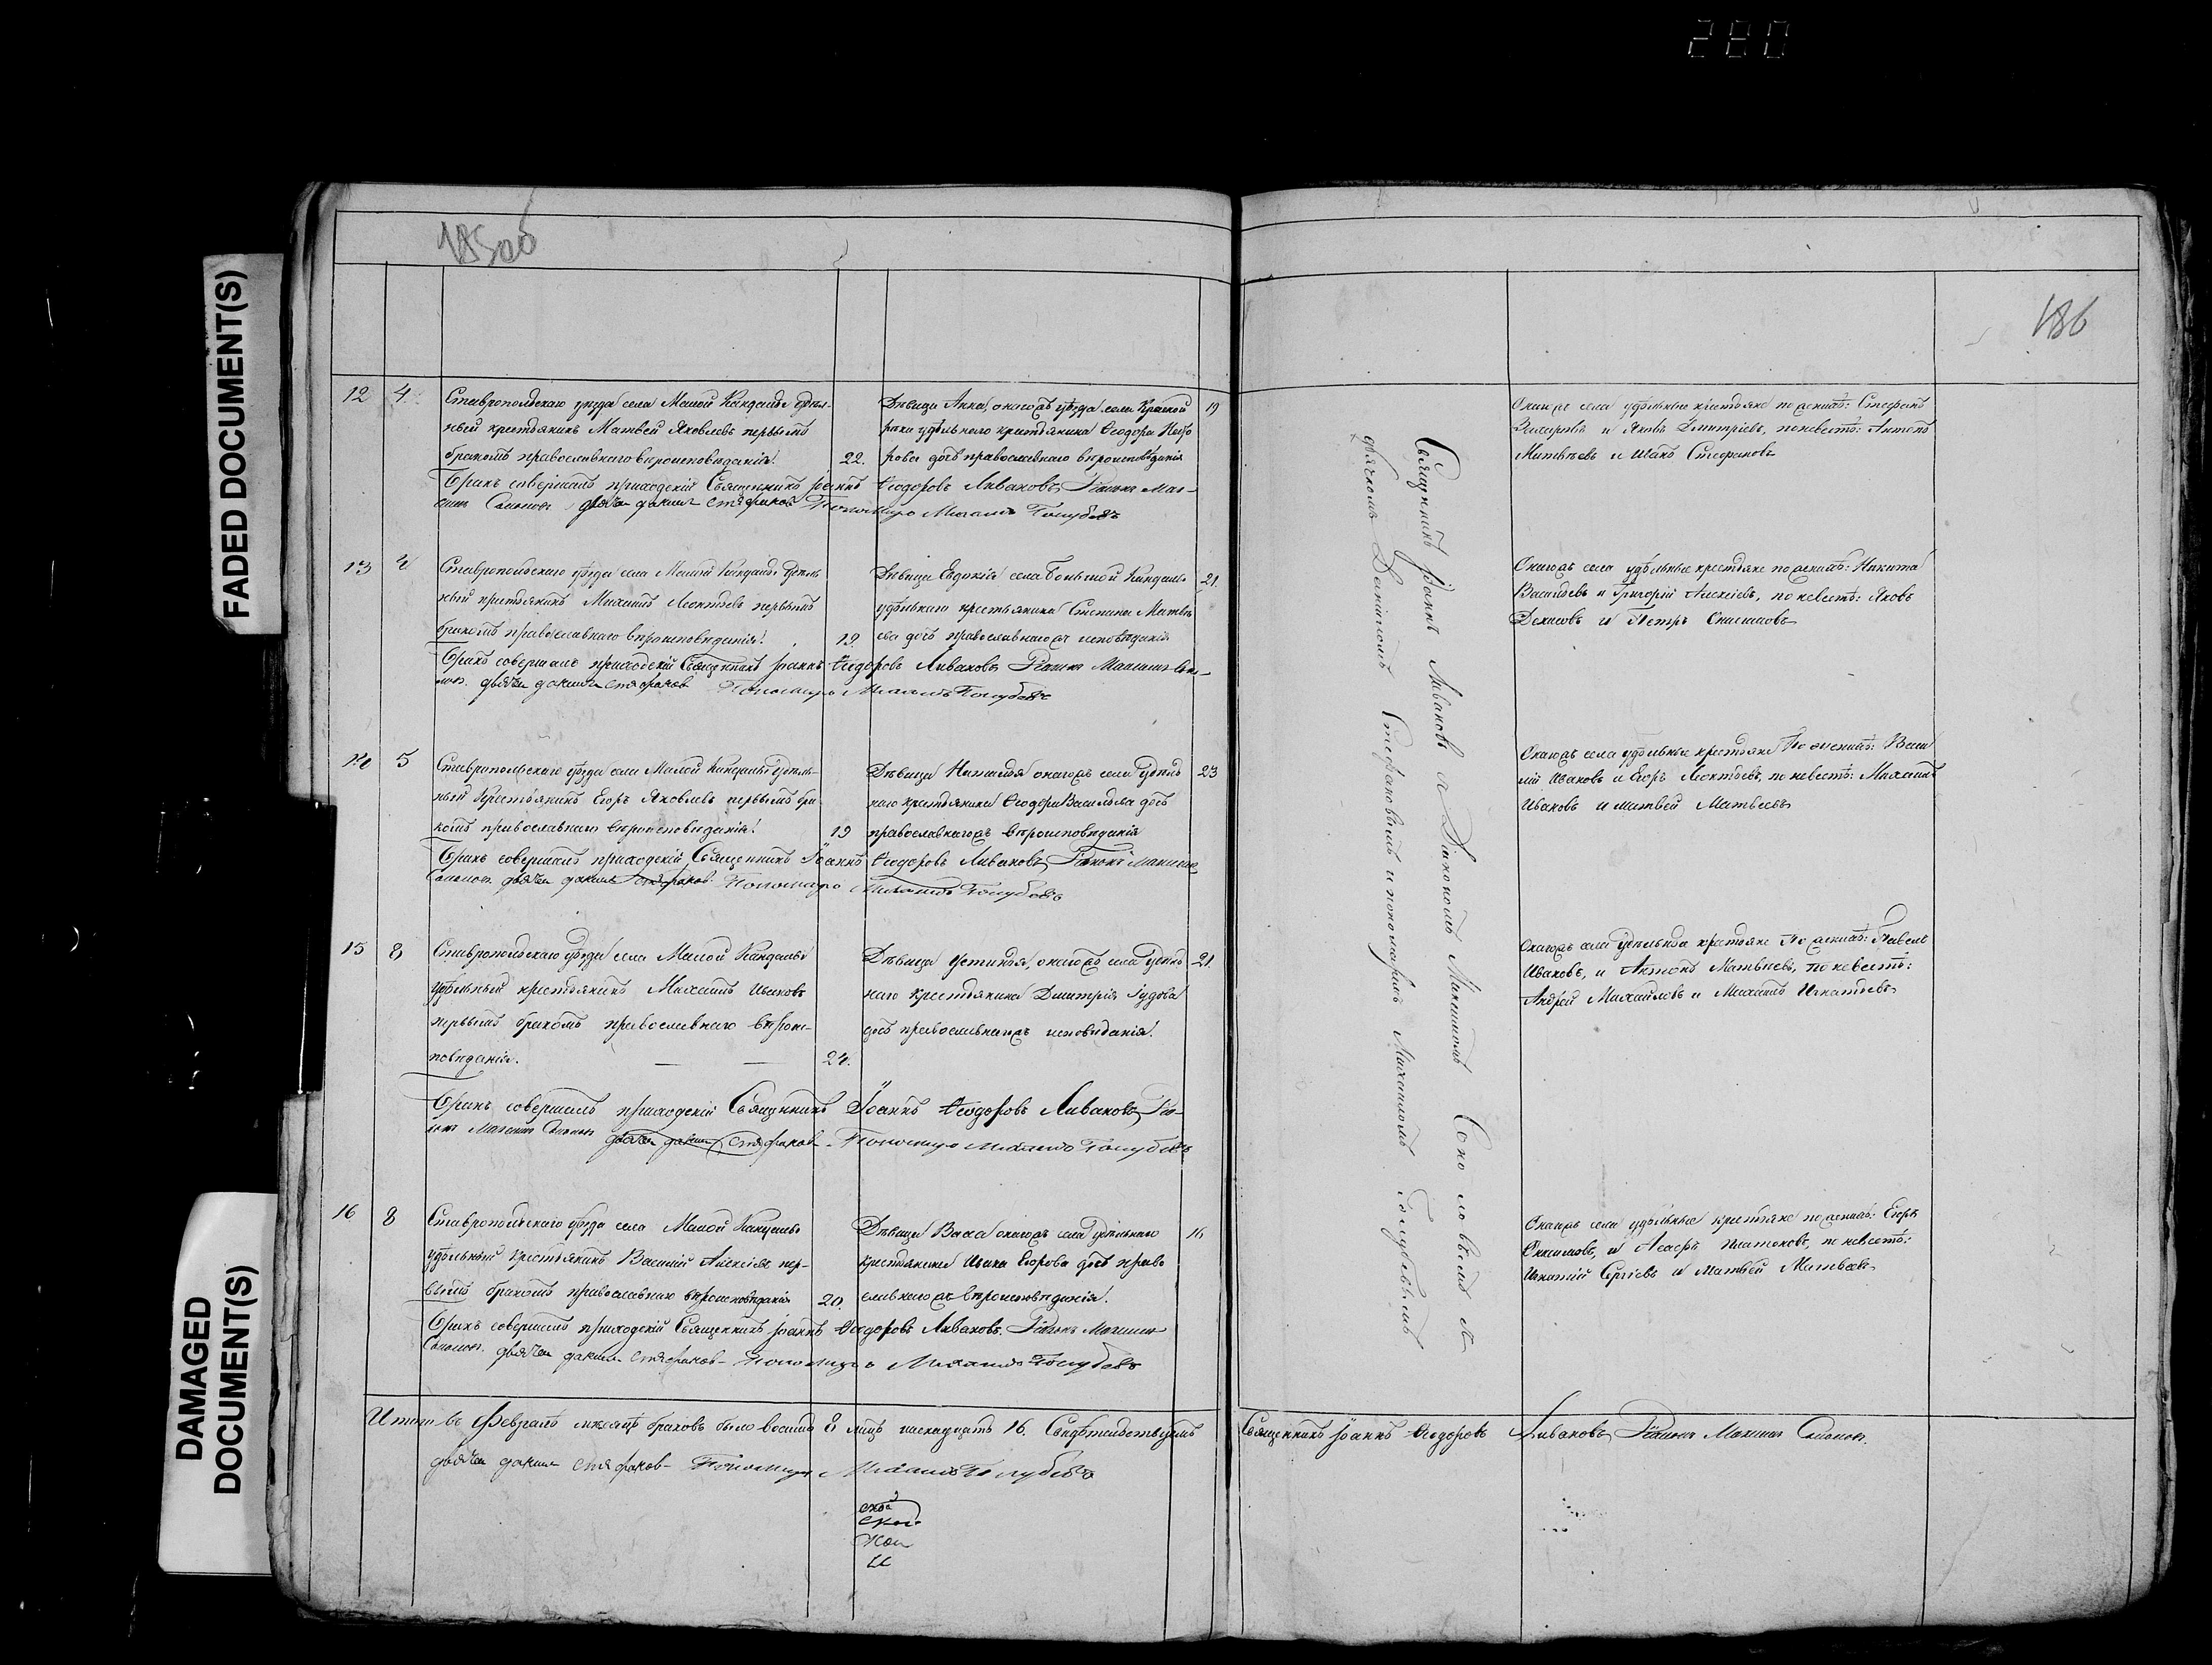 280
FADED DOCUMENT(S)
DAMAGED
DOCUMENT(S)
186
12 4. Ставропольскаго уѣзда села Малой Кандалы удѣль-
ный крестьянинъ Матвей Яковлевъ первымъ
бракомъ православнаго вѣроисповѣданія. 22.
Дѣвица Анна, онагожъ уѣзда села Красной
рѣки удѣльнаго крестьянина Ѳеодора
дочь православнаго вѣроисповѣданія 19
Бракъ совершалъ приходскій Священникъ Іоаннъ Ѳеодоровъ Ливановъ Діаконъ Мак-
симъ Пономарь Михаилъ Голубевъ
Онагожъ села удѣльные крестьяне по женихѣ: Стефанъ
Захаровъ и Яковъ Дмитріевъ, по невестѣ: Антонъ
Матвѣевъ и Иванъ Стефановъ
13 4 Ставропольскаго уѣзда села Малой Кандалы удѣль
ный крестьянинъ Михаилъ Леонтьевъ первымъ
бракомъ православнаго вѣроисповѣданія. 19.
Дѣвица Евдокія села Большой Кандалы
удѣльнаго крестьянина Степана Матвѣ
ева дочь православнагожъ исповѣданія 21.
Бракъ совершалъ приходскій Священникъ Іоаннъ Ѳеодоровъ Ливановъ Діаконъ Максимъ
Пономарь Михаилъ Голубевъ
Онагожъ села удѣльные крестьяне по женихѣ: Никита
Васильевъ и Григорій Алексѣевъ, по невестѣ: Яковъ
Денисовъ и Петръ
14 5 Ставропольскаго уѣзда села Малой Кандалы удѣль-
ный крестьянинъ Егоръ Яковлевъ первымъ бра
комъ православнаго вѣроисповѣданія. 19
Дѣвица Наталья онагожъ села удѣль
наго крестьянина Ѳеодора Васильева дочь
православнагожъ вѣроисповѣданія 23
Бракъ совершалъ приходскій Священникъ Іоаннъ Ѳеодоровъ Ливановъ Діаконъ Максимъ
Пономарь Михаилъ Голубевъ
Онагожъ села удѣльные крестьяне По женихѣ: Васи
лій Ивановъ и Егоръ Леонтьевъ, по невестѣ: Михаилъ
Ивановъ и Матвей Матвѣевъ
15 8 Ставропольскаго уѣзда села Малой Кандалы
удѣльный крестьянинъ Михаилъ Ивановъ
первымъ бракомъ православнаго вѣроис-
повѣданія. 24.
Дѣвица Устинья, онагожъ села удѣль
наго крестьянина Дмитрія Гудова
дочь православнагожъ исповѣданія. 21.
Бракъ совершалъ приходскій Священникъ Іоаннъ Ѳеодоровъ Ливановъ Діа-
конъ Максимъ Пономарь Михаилъ Голубевъ
Онагожъ села удѣльные крестьяне По женихѣ: Павелъ
Ивановъ, и Антонъ Матвѣевъ, по невестѣ:
Андрей Михайловъ и Михаилъ Игнатьевъ
16 8 Ставропольскаго уѣзда села Малой Кандалы
удѣльный крестьянинъ Василій Алексѣевъ пер-
вымъ бракомъ православнаго вѣроисповѣданія 20.
Дѣвица Васса онагожъ села удѣльнаго
крестьянина Ивана Егорова дочь право
славнагожъ вѣроисповѣданія. 16
Бракъ совершалъ приходскій Священникъ Іоаннъ Ѳеодоровъ Ливановъ. Діаконъ Максимъ
Пономарь Михаилъ Голубевъ
Онагожъ села удѣльные крестьяне по женихѣ: Егоръ
и Платоновъ, по невестѣ:
Игнатій Сергѣевъ и Матвей Матвѣевъ
Священникъ Іоаннъ Ливановъ съ Діакономъ Максимомъ Соколовымъ
дьячкомъ Даніиломъ Стефановымъ и пономаремъ Михаиломъ Голубевымъ
Итого въ Февралѣ мѣсяцѣ браковъ было восемь 8 лицъ шеснадцать 16. Свидѣтельствуемъ Священникъ Іоаннъ Ѳеодоровъ Ливановъ Діаконъ Максимъ
Пономарь Михаилъ Голубевъ